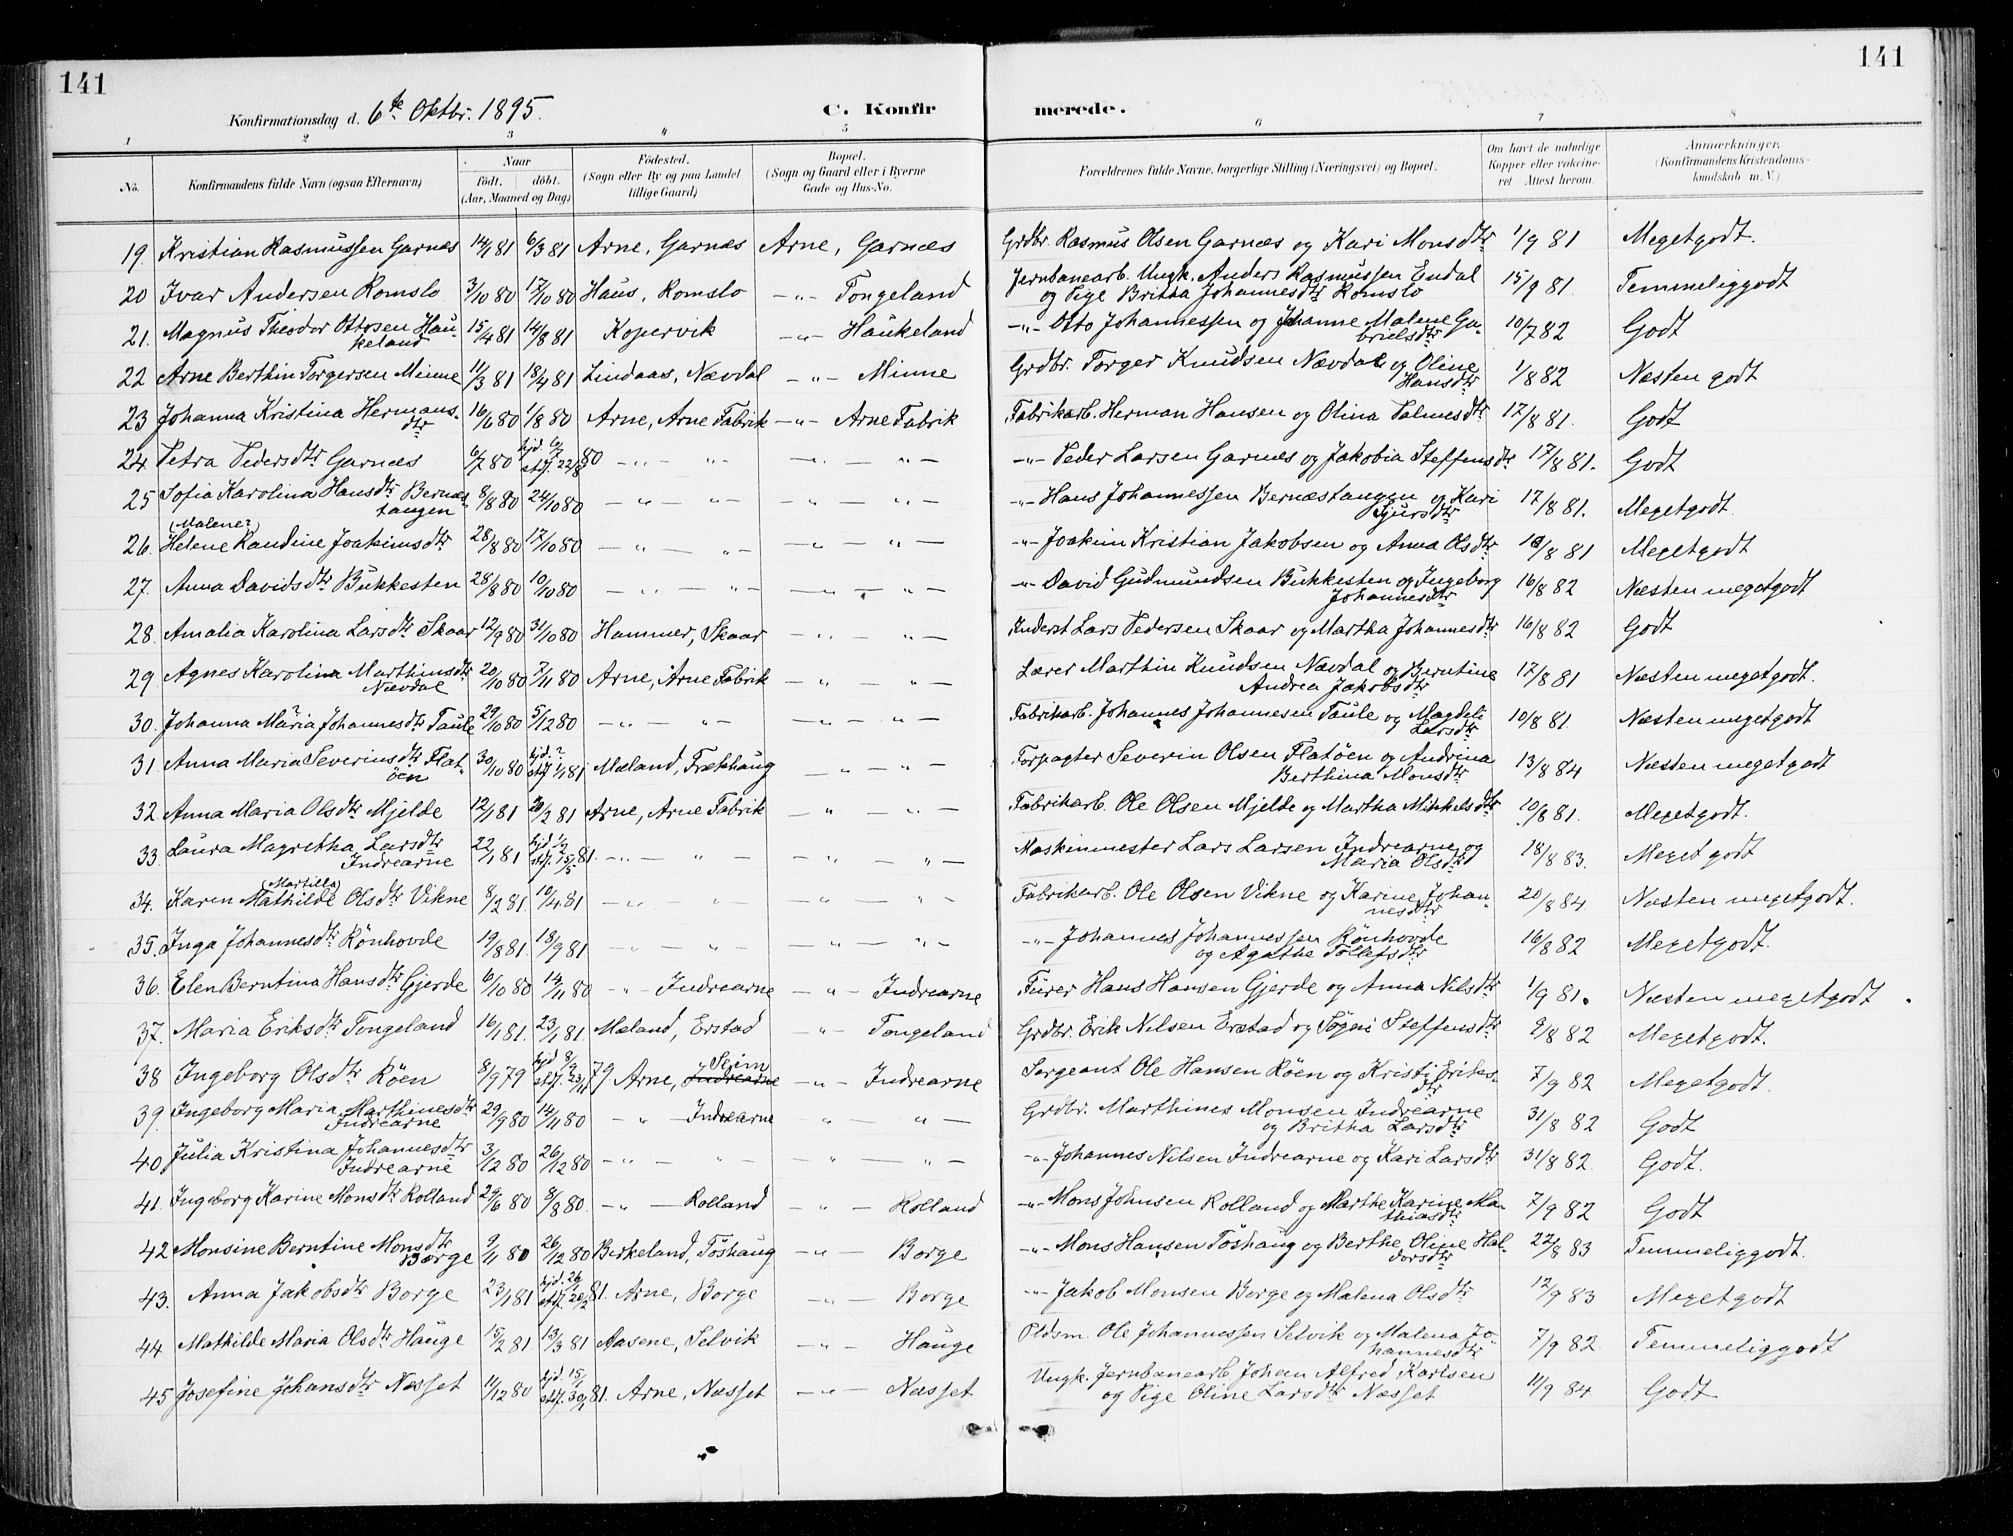 141
141
Konfirmationsdag d. 6te Oktbr. 1895.
C. Konfir merede.
1 2 3 4 5 6 7 8
No. Konfirmandens fulde Navn (ogsaa Efternavn) Naar født. døbt. (Aar, Maaned og Dag) Fødested. (Sogn eller By og paa Landet tillige Gaard) Bopæl. (Sogn og Gaard eller i Byerne Gade og Hus-No. Forældrenes fulde Navne, borgerlige Stilling (Næringsvei) og Bopæl. Om havt de naturlige Kopper eller vakcineret. Attest herom. Anmærkninger. (Konfirmandens Kristendomskundskab m. V.)
19. Kristian Rasmussen Garnæs 14/1 81 6/3 81 Arne, Garnæs Arne, Garnæs Grdbr. Rasmus Olsen Garnæs og Kari Monsdtr 1/9 81 Megetgodt.
20 Ivar Andersen Romslo 3/10 80 17/10 80 Haus, Romslo -"- Tongeland Jernbanearb. Ungk. Anders Rasmussen Endal og Pige Britha Johannesdtr Romslo 15/9 81 Temmeliggodt
21. Magnus Theodor Ottosen Haukeland 15/4 81 14/8 81 Kopervik -"- Haukeland -"- Otto Johannessen og Johanne Malene Gabrielsdtr 10/7 82 Godt
22 Arne Berthin Torgersen Minne 11/3 81 18/4 81 Lindaas, Nævdal -"- Minne Grdbr. Torger Knudsen Nævdal og Oline Hansdtr 1/8 82 Næsten godt
23 Johanna Kristina Hermansdtr 16/6 80 1/8 80 Arne, Arne Fabrik -"- Arne Fabrik Fabrikarb. Herman Hansen og Olina Salmesdtr 17/8 81. Godt
24. Petra Pedersdtr Garnæs 6/7 80 hjd. 6/7 stdf. 22/8 80 -"- "- -"- "- -"- Peder Larsen Garnæs og Jakobia Steffensdtr 17/8 81. Godt
25 Sofia Karolina Hansdtr Bernæstangen 8/8 80 24/10 80 -"- "- -"- "- -"- Hans Johannessen Bernæstangen og Kari Sjursdtr 17/8 81. Megetgodt
26. Helene (Malene?) Randine Joakimsdtr 28/8 80 17/10 80 -"- "- -"- "- -"- Joakim Kristian Jakobsen og Anna Olsdtr /8 81 Megetgodt
27. Anna Davidsdtr Bukkesten 28/8 80 10/10 80 -"- "- -"- "- -"- David Gudmundsen Bukkesten og Ingeborg Johannesdtr 16/8 82 Næsten megetgodt
28. Amalia Karolina Larsdtr Skaar 12/9 80 31/10 80 Hammer, Skaar -"- "- Inderst Lars Pedersen Skaar og Martha Johannesdtr 16/8 82 Godt
29 Agnes Karolina Marthinsdtr Nævdal 20/10 80 7/11 80 Arne, Arne Fabrik -"- "- Lærer Marthin Knudsen Nævdal og Berntine Andrea Jakobsdtr 17/8 81 Næsten megetgodt.
30. Johanna Maria? Johannesdtr Taule 29/10 80 5/12 80 -"- "- -"- "- Fabrikarb. Johannes Johannesen Taule og Magdeli Larsdtr 10/8 81 Næsten megetgodt
31 Anna Maria Severinsdtr Flatöen 30/10 80 hjd. ? stdf. 1/1 81 Mæland, Frekhaug -"- "- Forpagter Severin Olsen Flatöen og Andrina Berthina Monsdtr 13/8 84 Næsten megetgodt
32 Anna Maria Olsdtr Mjelde 12/1 81 20/3 81 Arne, Arne Fabrik -"- "- Fabrikarb. Ole Olsen Mjelde og Martha Mikkelsdtr 10/8 81. Megetgodt.
33. Laura Magretha Larsdtr Indrearne 22/1 81 hjd. 1/2 stdf. 15/5 81. -"- "- -"- "- Maskinmester Lars Larsen Indrearne og Maria Olsdtr 18/8 83. Meget godt
34. Karen Mathilde (Martilla) Olsdtr Vikne 8/2 81. 10/4 81 -"- "- -"- "- Fabrikarb. Ole Olsen Vikne og Karine Johannesdtr 20/8 84 Næsten megetgodt.
35. Inga Johannesdtr Rönhovde 19/8 81. 18/9 81 -"- "- -"- "- -"- Johannes Johannessen Rönhovde og Agathe Tollefsdtr 16/8 82 Megetgodt.
36. Elen Berntina Hansdtr Gjerde 6/10 80 14/11 80 -"- Indrearne -"- Indrearne Furer Hans Hansen Gjerde og Anna Nilsdtr 1/9 81. Næsten megetgodt
37. Maria Eriksdtr Tongeland 16/1 81. 23/1 81 Mæland, Erstad -"- Tongeland Grdbr. Erik Nilsen Erstad og Sögni Steffensdtr 9/8 82 Megetgodt.
38 Ingeborg Olsdtr Röen 8/9 79 hjd 8/9 stdf. 23/11 79 Arne, Indrearne Seim -"- Indrearne Sergeant Ole Hansen Röen og Kristi Eriksdtr 7/9 82 Megetgodt.
39. Ingeborg Maria Marthinesdtr Indrearne 29/9 80 14/11 80 -"- Indrearne "- "- Grdbr. Marthines Monsen Indrearne og Britha Larsdtr 31/8 82 Godt
40 Julia Kristina Johannesdtr Indrearne 3/12 80 26/12 80 -"- "- -"- "- -"- Johannes Nilsen Indrearne og Kari Larsdtr 31/8 82. Godt.
41. Ingeborg Karine Monsdtr Rolland 29/6 80 8/8 80. -"- Rolland -"- Rolland -"- Mons Johnsen Rolland og Marthe Karine Mathiasdtr 7/9 82 Godt
42 Monsine Berntine Monsdtr Börge 9/11 80 26/12 80 Birkeland, Töshaug -"- Borge -"- Mons Hansen Töshaug og Berthe Oline Haldorsdtr 22/8 83 Temmeliggodt.
43. Anna Jakobsdtr Borge 23/1 81 hjd. 26/1 stdf. 20/2 81. Arne, Borge -"- Borge -"- Jakob Monsen Borge og Malena Olsdtr 12/9 83 Megetgodt
44 Mathilde Maria Olsdtr Hauge 15/2 81. 13/3 81 Aasene, Selvik -"- Hauge Pldsm. Ole Johannessen Selvik og Malena Johannesdtr 7/9 82 Temmeliggodt
45 Josefine Johansdtr Næsset 11/12 80 hjd. 15/1 stdf. 30/1 81. Arne, Næsset -"- Næsset Ungk. Jernbanearb Johan Alfred Karlsen og Pige Oline Larsdtr Næsset 11/9 84 Godt